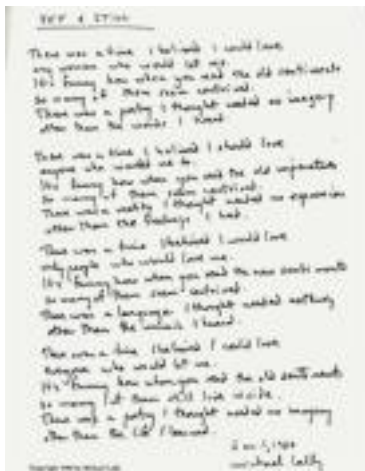 There was a time I believed I could love
any woman who would let me.
It's funny how when you read the old sentiments
so many of them seem contrived.
There was a poetry I thought needed no imagery
other than the words I
There was a time I believed I should love
anyone who wanted me to.
It's funny how when you read the old
so many of them seem contrived.
There was a reality I thought needed no expression
other than the feelings I had.
There was a time I believed I would love
only people who would love me.
It's funny how when you read the new sentiments
so many of them seem contrived.
There was a language I thought needed nothing
other than the music I heard.
There was a time I believed I could love
everyone who would let me.
It's funny how when you read the old sentiments
so many of them still
There was a poetry I thought needed no imagery
other than the life I
Michael Lally